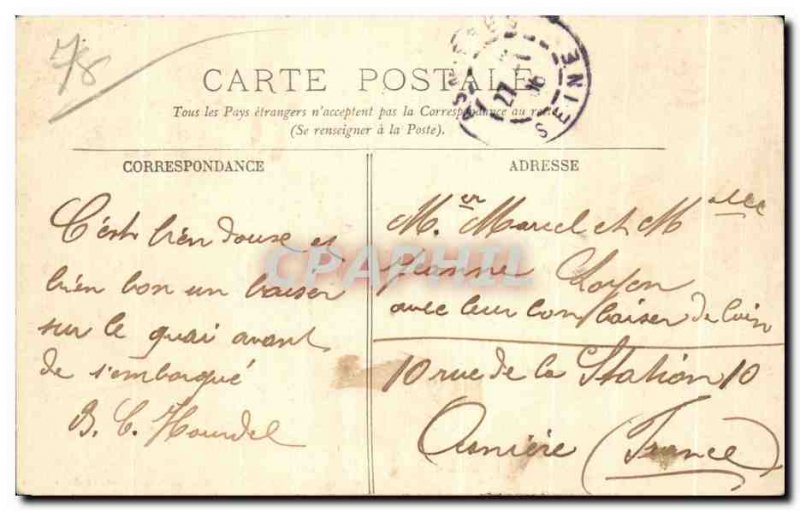 78
CARTE POSTALE
Tous les Pays étrangers n'acceptent pas la Correspondance au recto
(Se renseigner à la Poste).
SEINE
27 -1
CORRESPONDANCE
C'est bien douse et
bien bon un baiser
sur le quai avant
de s'embarqué
B. C. Hourdel
ADRESSE
Mer Marcel et Melle
Jeanne Loyen
avec leur bon baiser de loin
10 rue de la Station 10
Asnière (France)
CPAPHIL